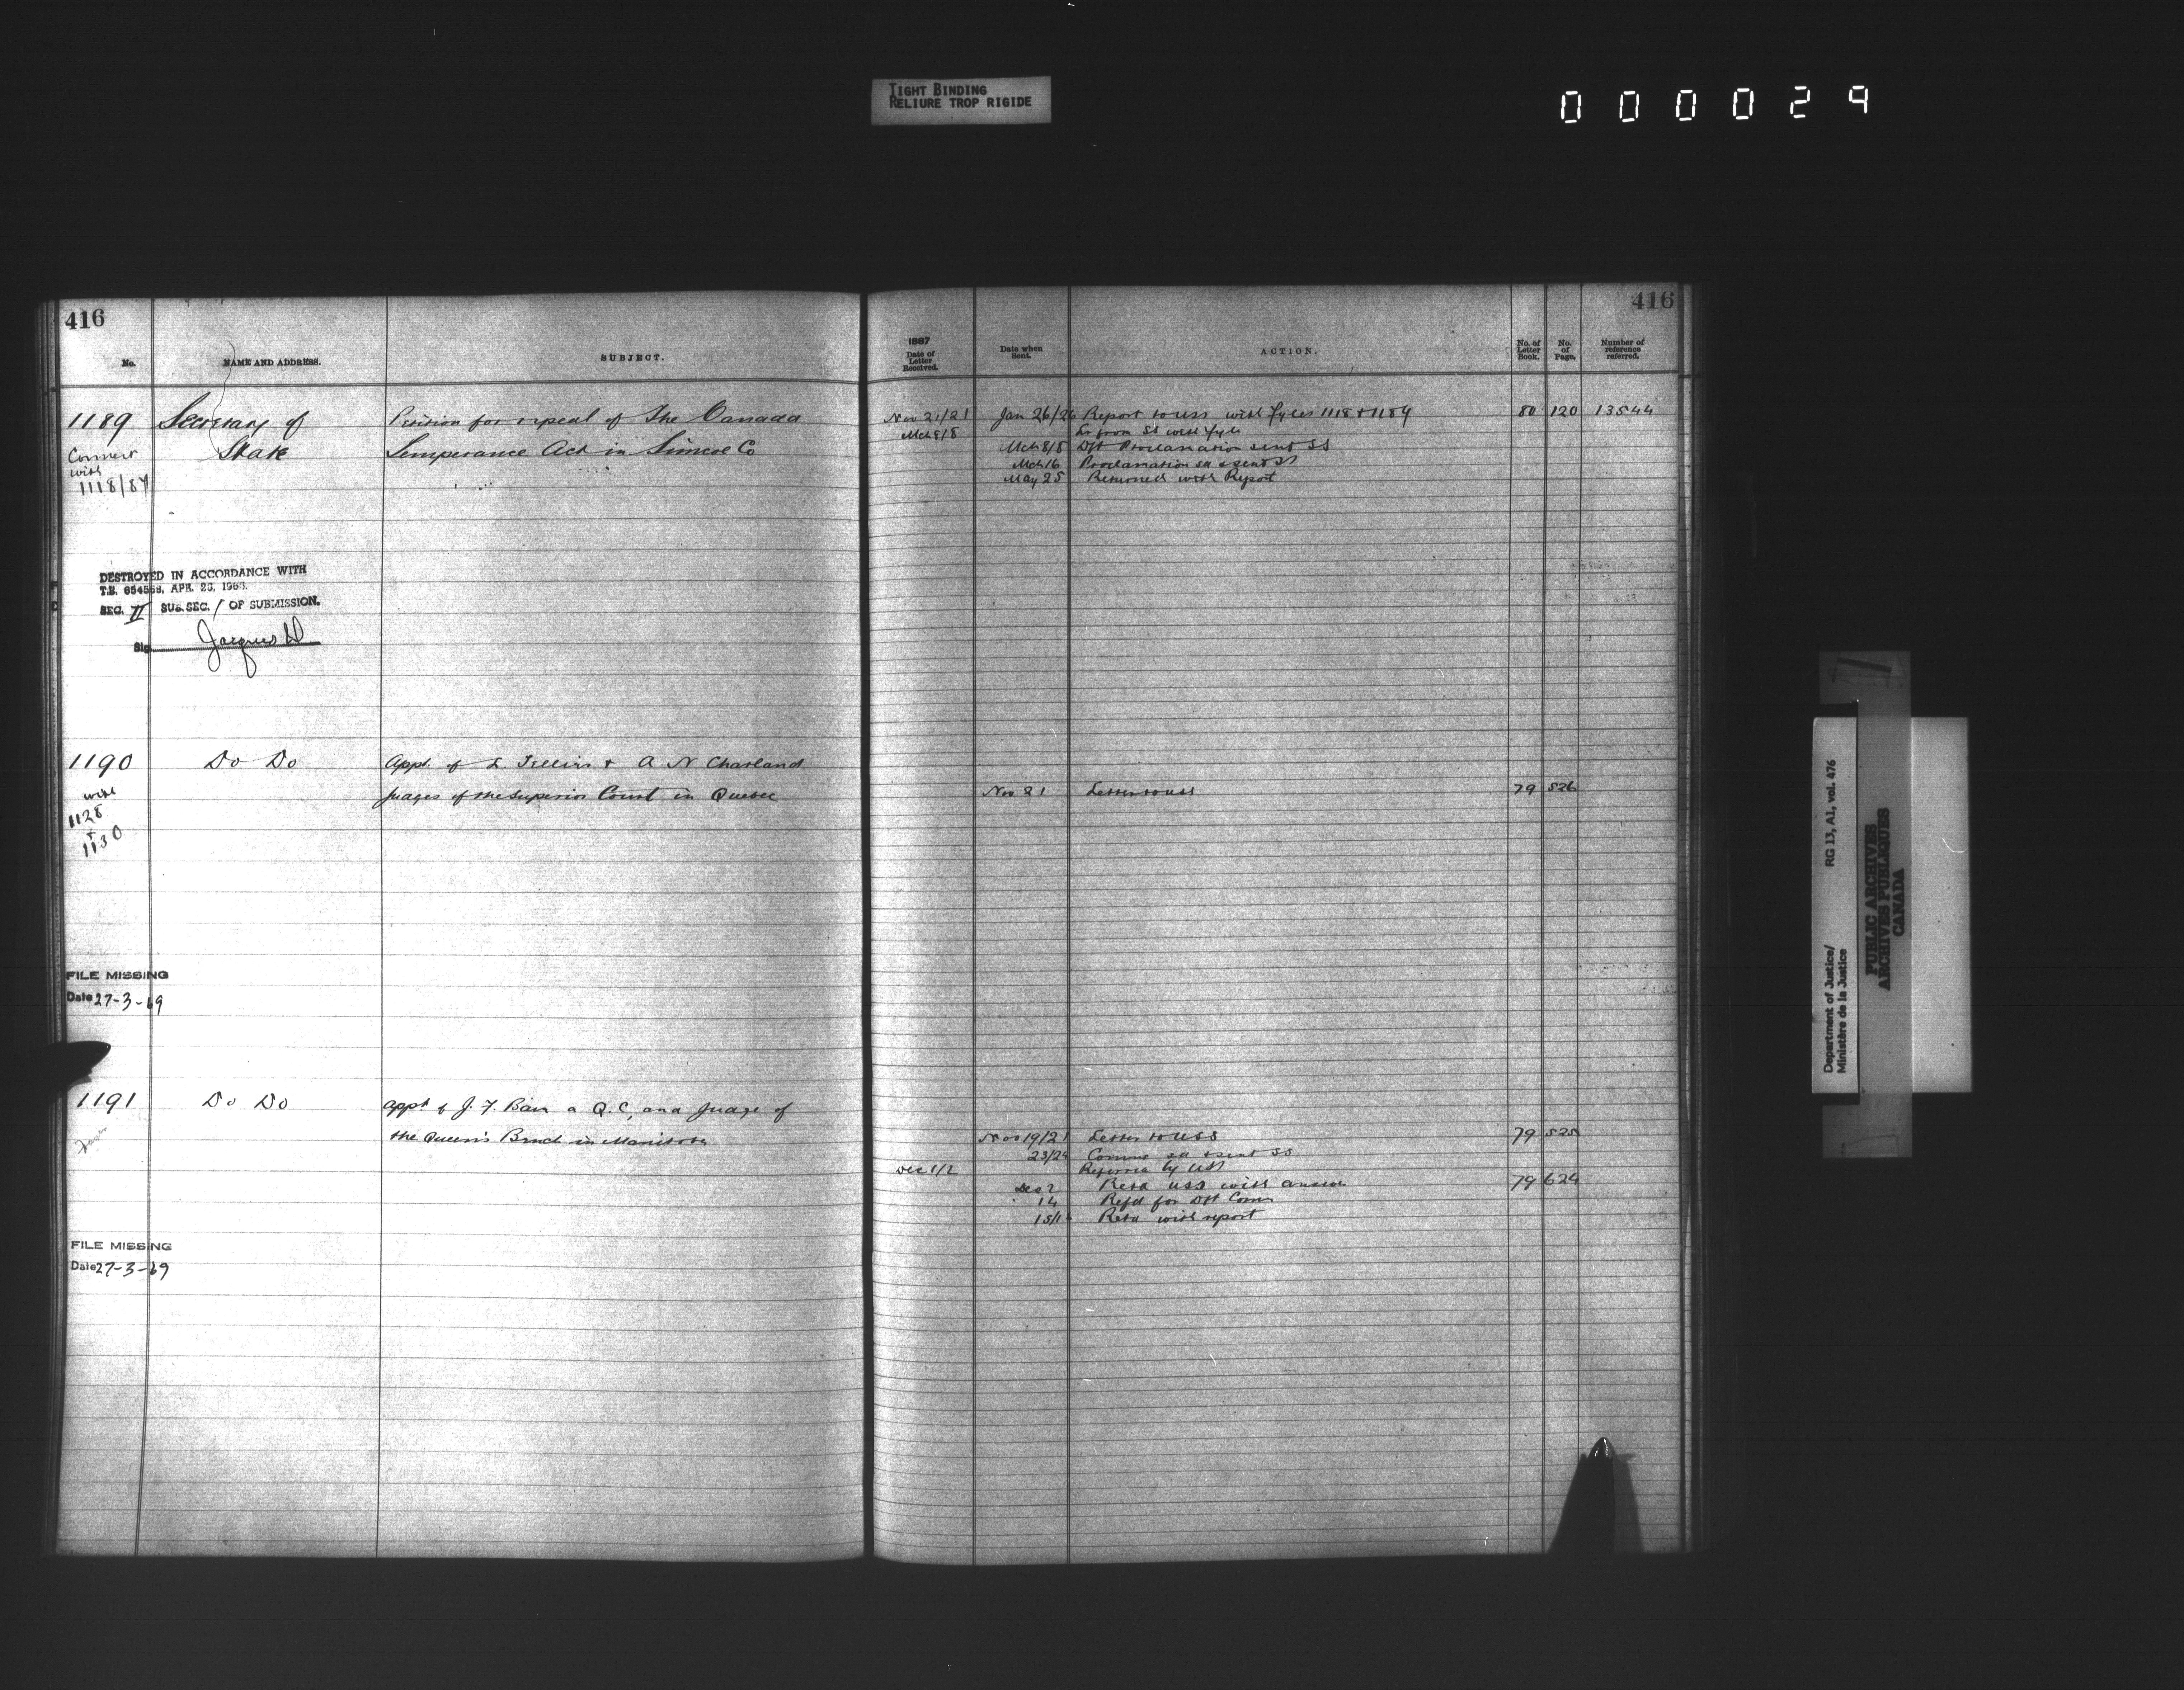 TIGHT BINDING
RELIURE TROP RIGIDE
000029
416
No.
NAME AND ADDRESS.
SUBJECT.
1189 Secretary of Petition for repeal of The Canada
State Temperance Act in Simcoe Co
Connect
with
1118/87
DESTROYED IN ACCORDANCE WITH
T.B. 654568, APR. 26, 1966.
SEC. II SUB.SEC. / OF SUBMISSION.
Sig
1190 Do Do Appt. of L. Tellier & A N Charland
Judges of the Superior Court in Quebec
with
1128
+
1130
FILE MISSING
Date 27-3-69
1191 Do Do Appt of J. F. Bain a Q.C, and Judge of
the Queen's Bench in Manitoba
FILE MISSING
Date 27-3-69
416
1887
Date of
Letter
Received.
Date when
Sent.
ACTION.
No. of
Letter
Book.
No.
of
Page.
Number of
reference
referred.
Nov 21/21 Jan 26/26 Report to USS with fyles 1118 & 1189 80 120 13544
Mch 8/8 Lr from SS with fyle
Mch 8/8 Dft Proclamation sent SS
Mch 16 Proclamation sd & sent SS
May 25 Returned with Report
Nov 21 Letter to USS 79 526
Nov 19/21 Letter to USS 79 525
23/24 Comms sd & sent SS
Dec 1/2 Referred by USS
Dec 2 Retd USS with answer 79 624
" 14 Refd for Dft Comn
15/1 Retd with report
Department of Justice/
Ministère de la Justice
RG 13, A1, vol. 476
PUBLIC ARCHIVES
ARCHIVES PUBLIQUES
CANADA